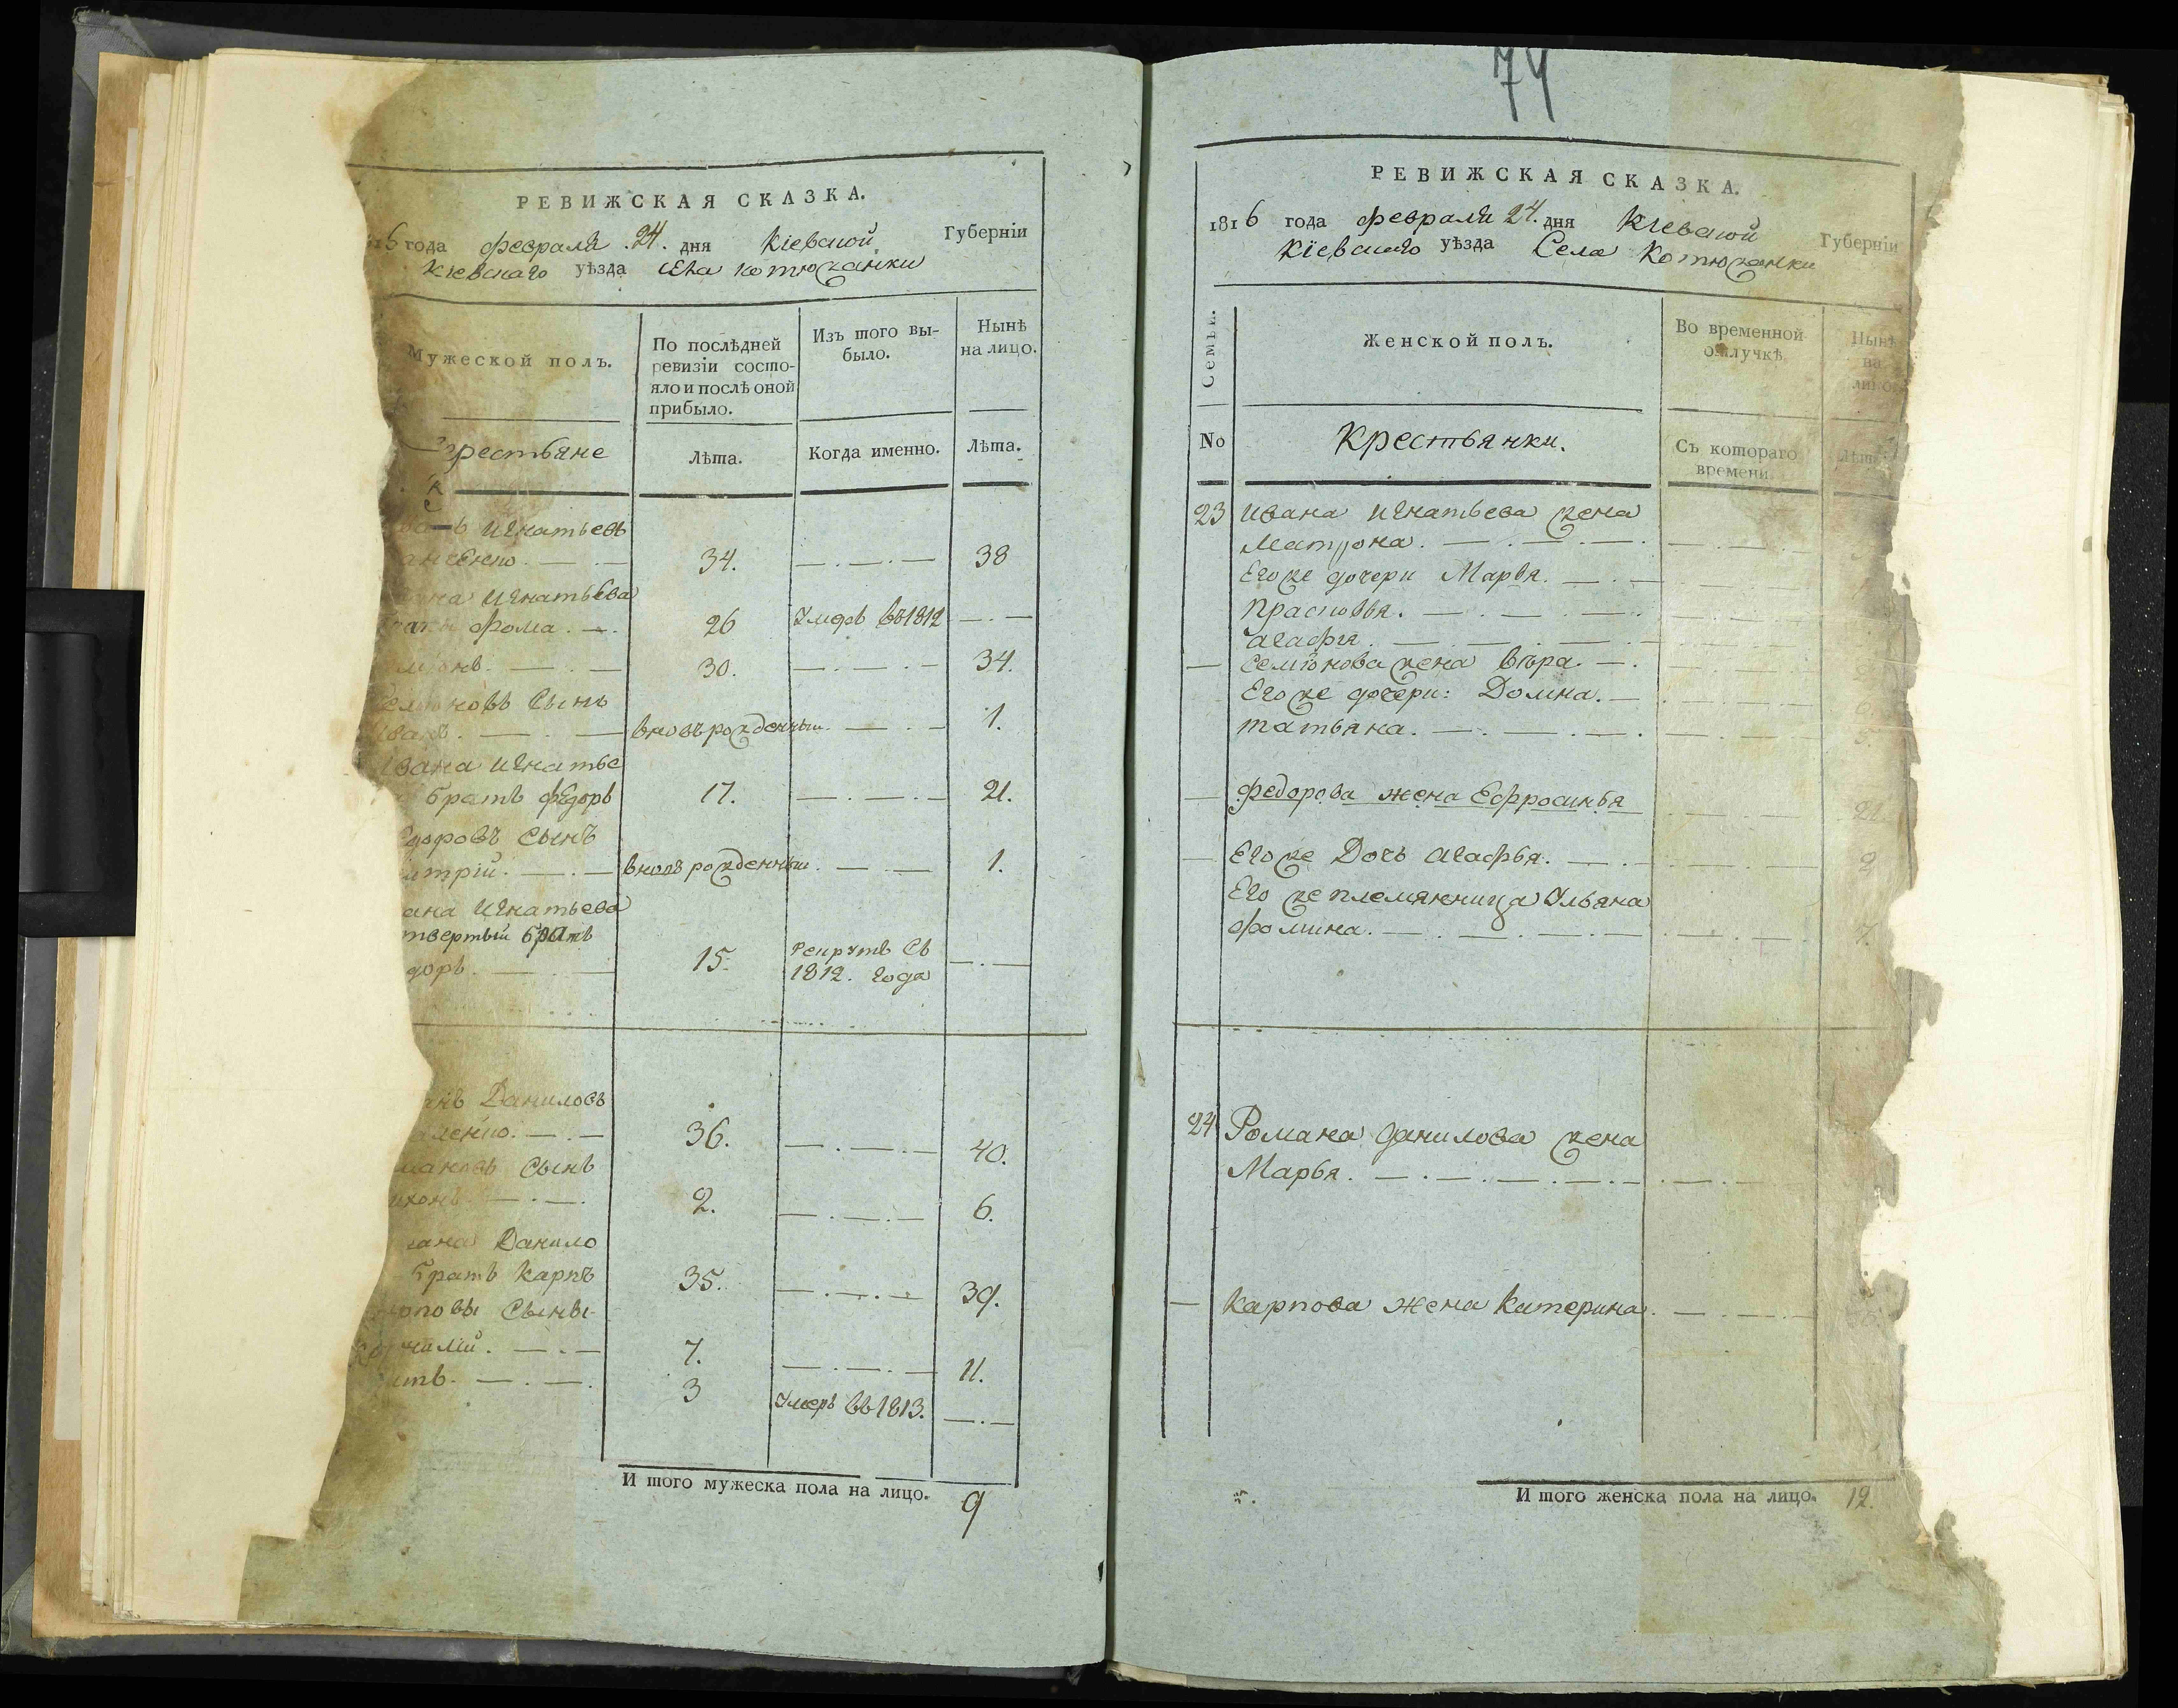 РЕВИЖСКАЯ СКАЗКА.
6 года февраля 24. дня Кіевской Губерніи
Кіевскаго уѣзда села Котюжанки
Мужеской полъ.
По послѣдней
ревизіи состо-
яло и послѣ оной
прибыло.
Изъ того вы-
было.
Нынѣ
на лицо.
крестьяне
Лѣта.
Когда именно.
Лѣта.
Игнатьевъ
34. 38
Игнатьева
Фома. 26 Умеръ въ 1812
30. 34.
Сынъ
вновьрожденный 1.
Игнатье
братъ Федоръ 17. 21.
Сынъ
вновьрожденный 1.
Игнатьева
твертый братъ
15. Рекрутъ съ
1812. года
Даниловъ
36. 40.
Сынъ
2. 6.
Данило
братъ Карпъ 35. 39.
Сыны
7. 11.
3 Умеръ въ 1813.
И того мужеска пола на лицо. 9
74
РЕВИЖСКАЯ СКАЗКА.
1816 года февраля 24. дня Кіевской Губерніи
Кіевскаго уѣзда Села Котюжанки
Семьи.
Женской полъ.
Во временной
отлучкѣ
Нынѣ
на
лицо
No
Крестьянки.
Съ котораго
времени.
23 Ивана Игнатьева жена
Матрона.
Егоже дочери Марья.
Прасковья.
Агафія.
Семіонова жена Вѣра.
Егоже дочери: Домна.
Татьяна. 5.
Федорова жена Ефросинья 21.
Егоже Дочь Агафья. 2
Его же племянница Ульяна
Фомина. 7.
24 Романа Данилова жена
Марья.
Карпова жена Катерина.
И того женска пола на лицо. 12.